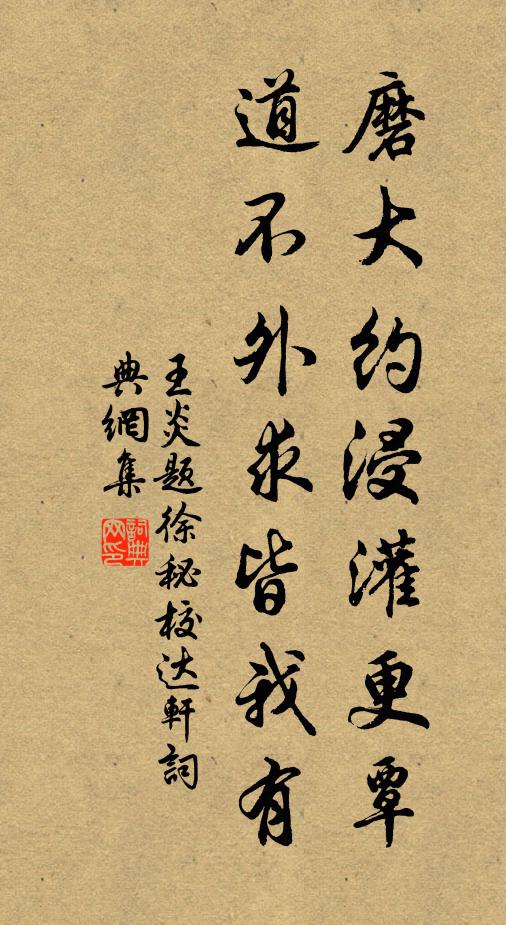 磨大约浸灌更覃
道不外求皆我有
王炎题徐秘校达軒詞
典網集
詞典网印